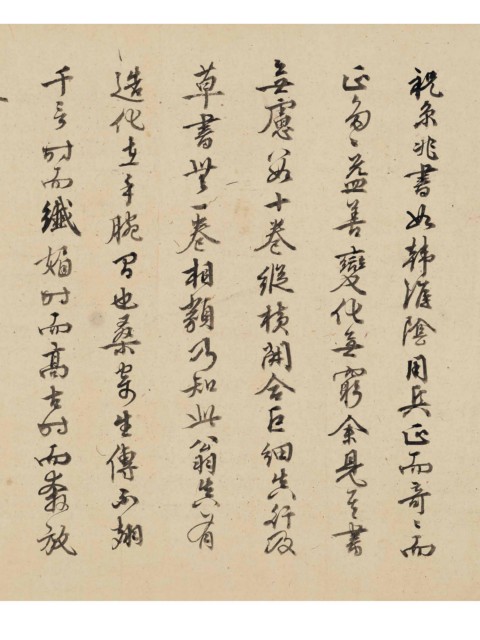 祝京兆書如韓淮陰用兵正而奇〻而
正多〻益善變化無窮余見其書
無慮數十卷縱橫開合巨細真行
草書無一卷相類乃知此翁真有
造化在手腕間也桑寄生傳不翅
千言時而纖媚時而高古時而奔放